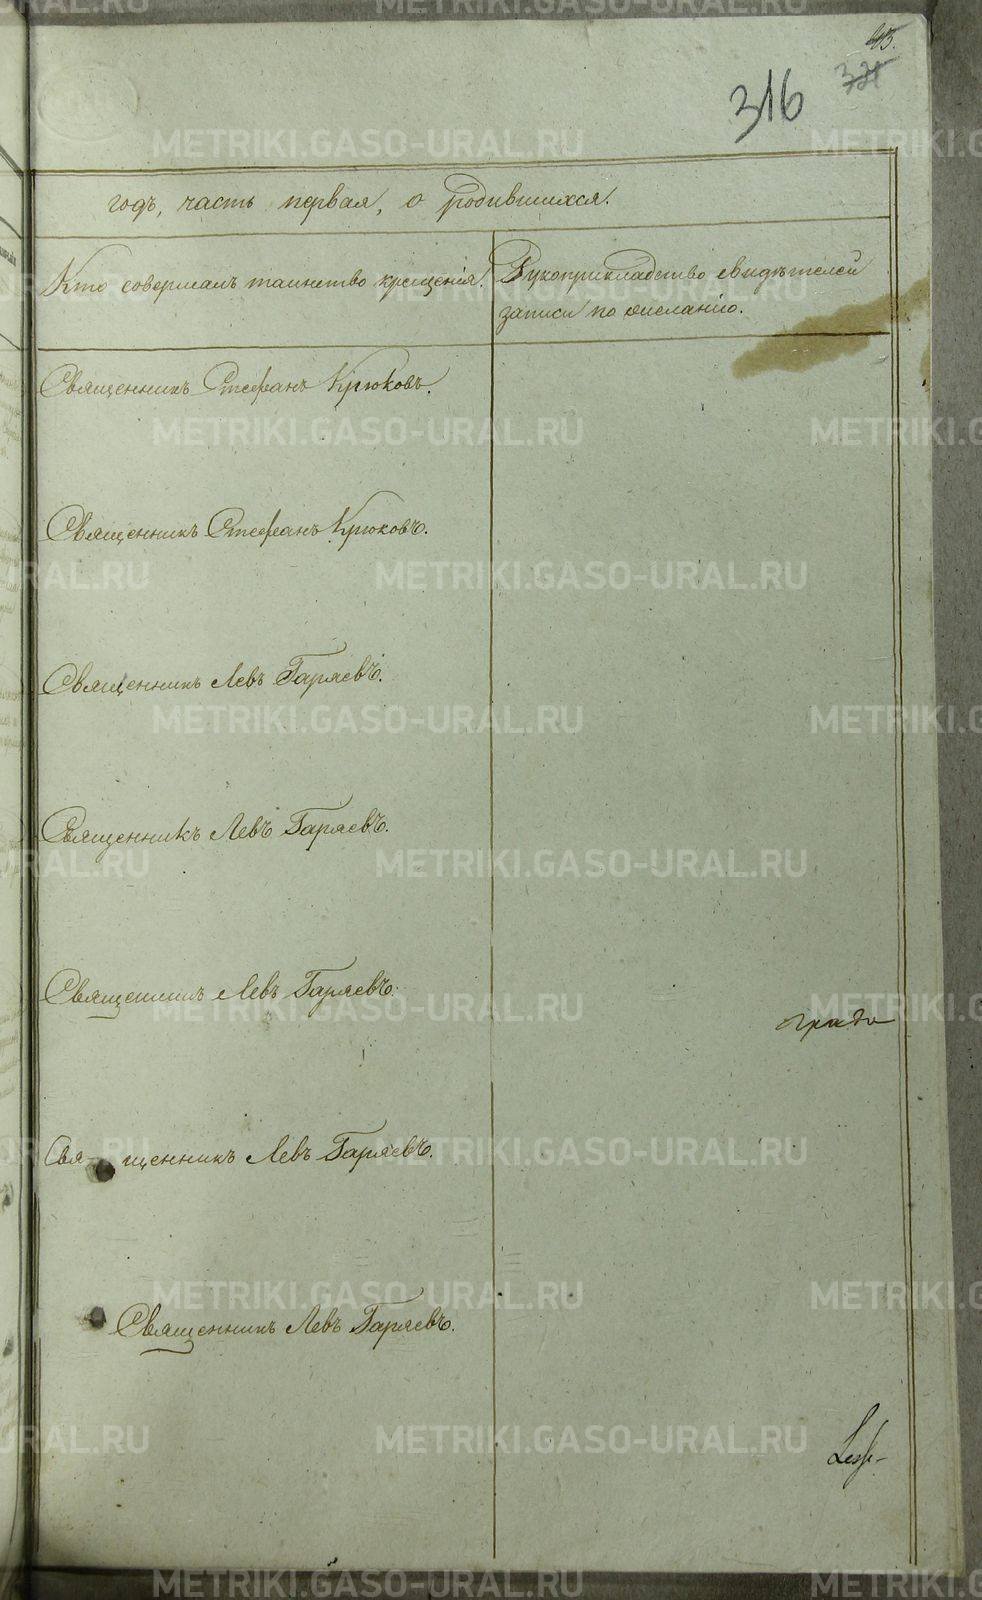 316
годъ, часть первая, о родившихся.
Кто совершалъ таинство крещенія.
Рукоприкладство свидѣтелей
записи по желанію.
Священникъ Стефанъ Крюковъ.
Священникъ Стефанъ Крюковъ.
Священникъ Левъ Гаряевъ.
Священникъ Левъ Гаряевъ.
Священникъ Левъ Гаряевъ.
Священникъ Левъ Гаряевъ.
Священникъ Левъ Гаряевъ.
METRIKI.GASO-URAL.RU